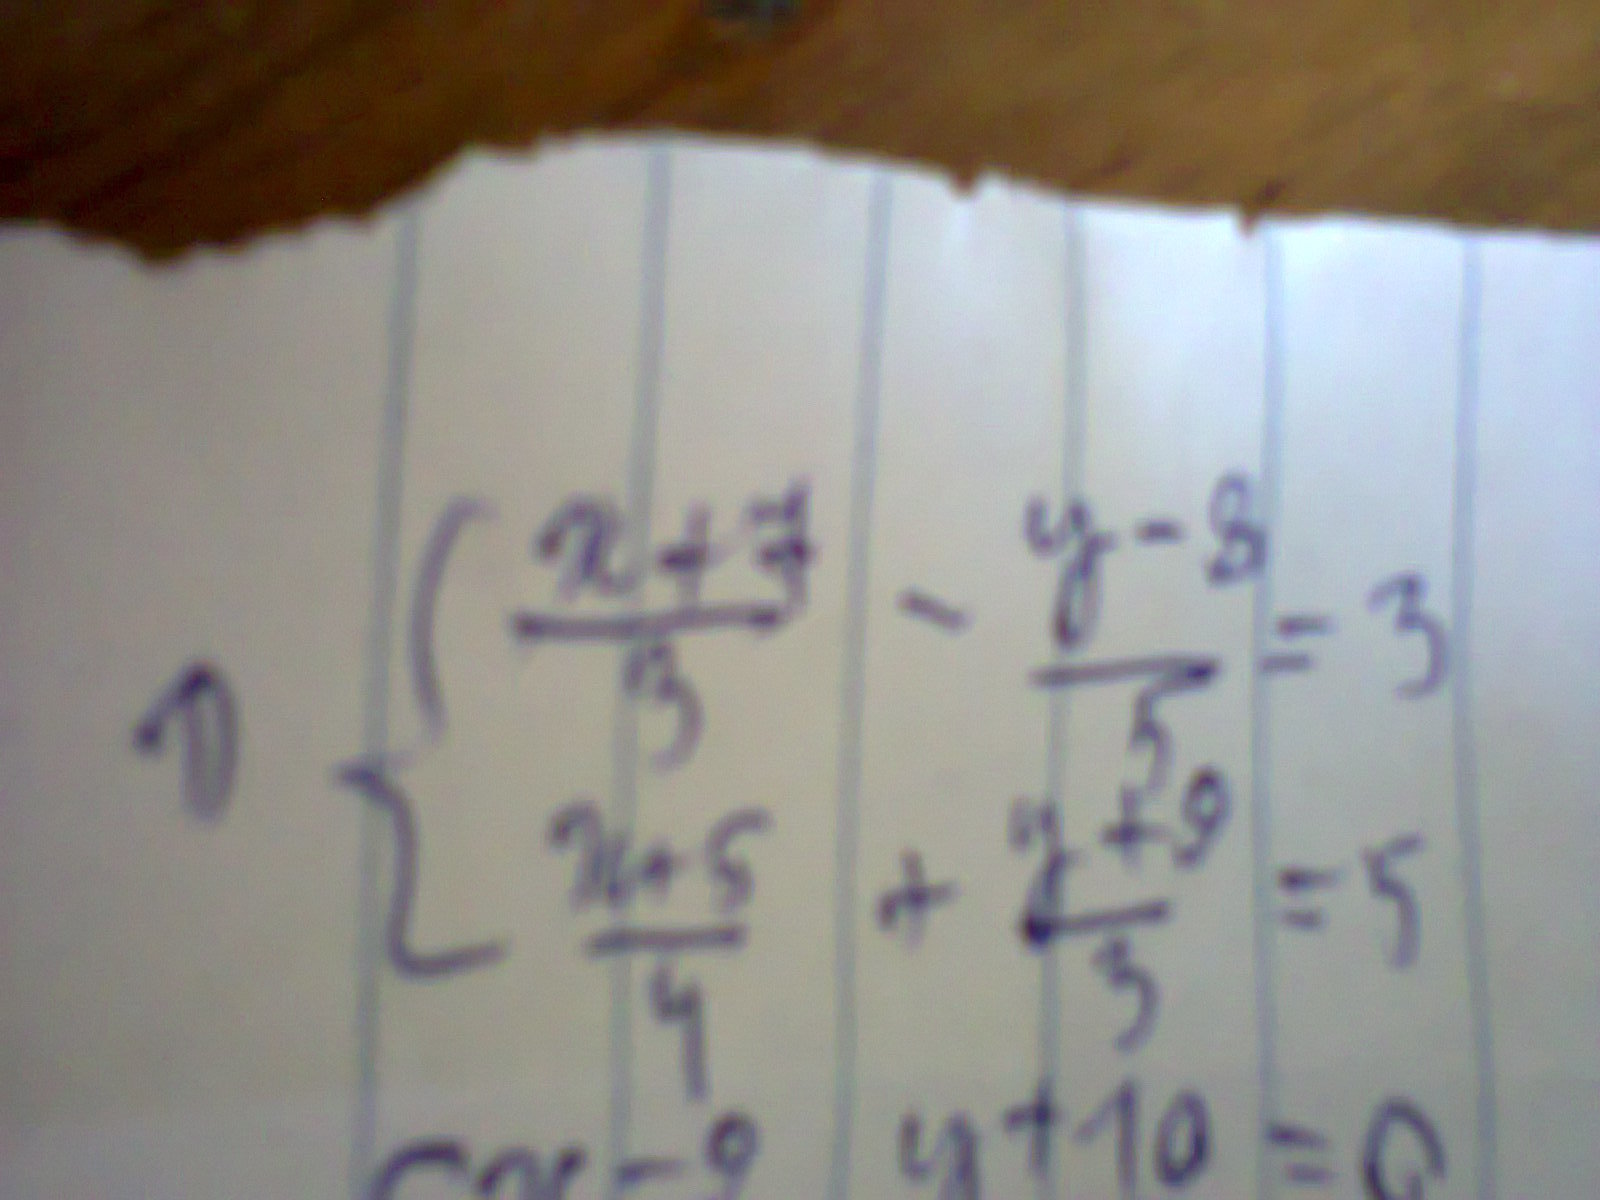 1) { (x+7)/3 - (y-8)/5 = 3
(x+5)/4 + (y+9)/3 = 5
x-9 y+10 = 0